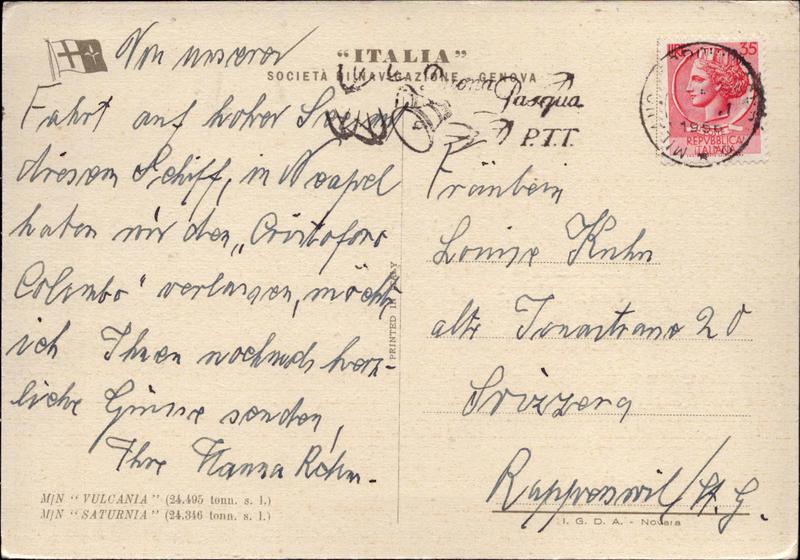 "ITALIA"
SOCIETÀ DI NAVIGAZIONE - GENOVA
Von unserer
Fahrt auf hoher See mit
diesem Schiff, in Neapel
haben wir den "Cristoforo
Colombo" verlassen, möchte
ich Ihnen nochmals herz-
liche Grüsse senden,
Ihre Hanna Röhm.
M/N "VULCANIA" (24.495 tonn. s. l.)
M/N "SATURNIA" (24.346 tonn. s. l.)
PRINTED IN ITALY
Buona
Pasqua
P.T.T.
35
REPVBBLICA
ITALIANA
MILANO
1956
Fräulein
Louise Kuhn
alte Jonastrasse 20
Svizzera
Rapperswil/St. G.
I. G. D. A. - Novara